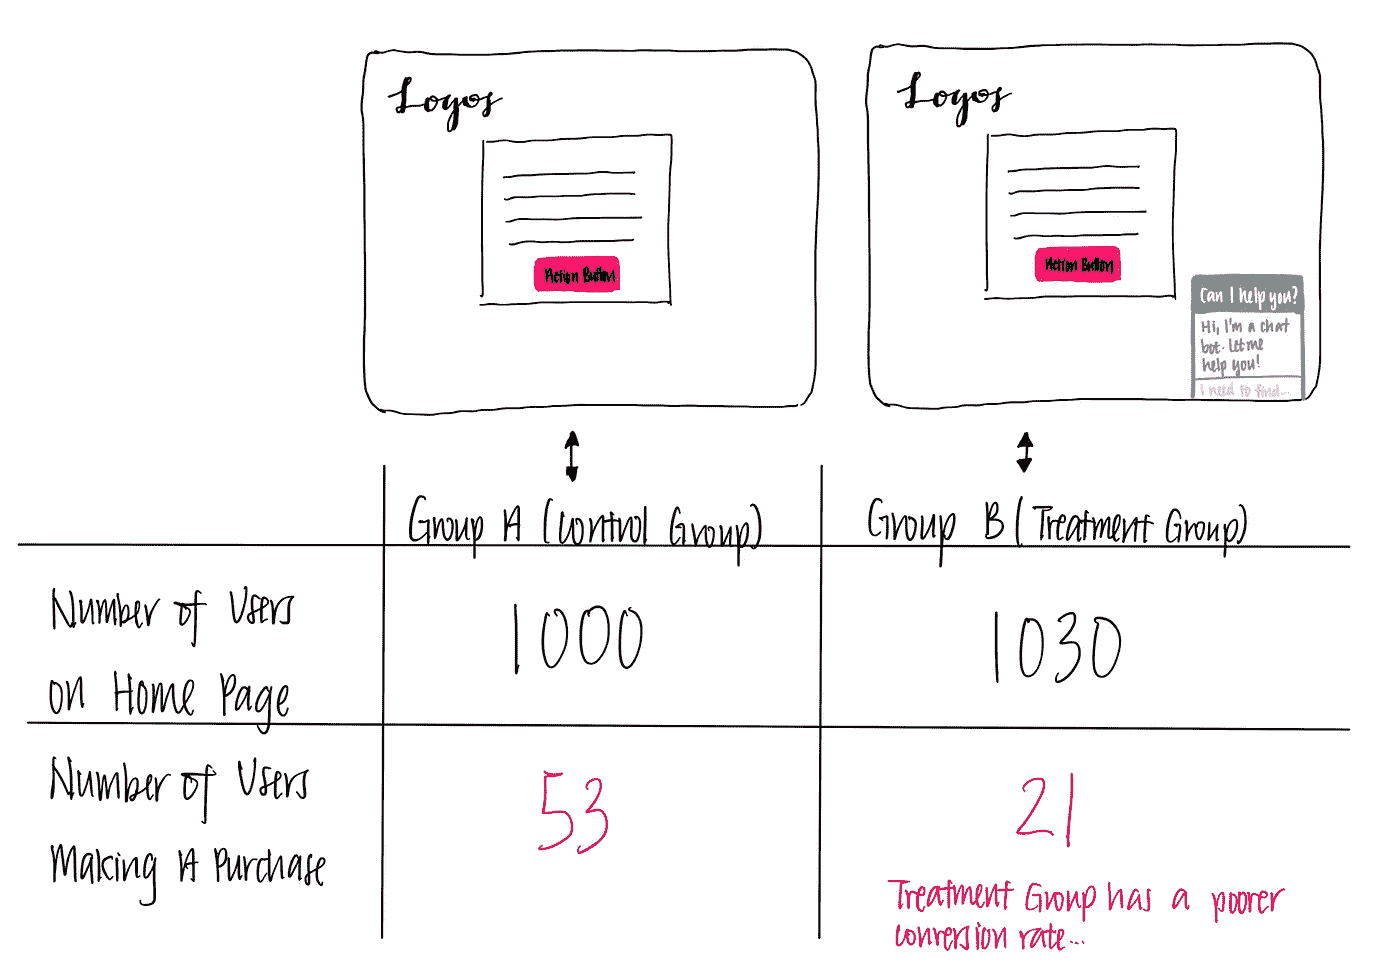 Logos
Action Button
Logos
Action Button
Can I help you?
Hi, I'm a chat
bot. Let me
help you!
I need to find...
Group A (Control Group)
Group B (Treatment Group)
Number of Users
on Home Page
1000
1030
Number of Users
Making A Purchase
53
21
Treatment Group has a poorer
conversion rate...